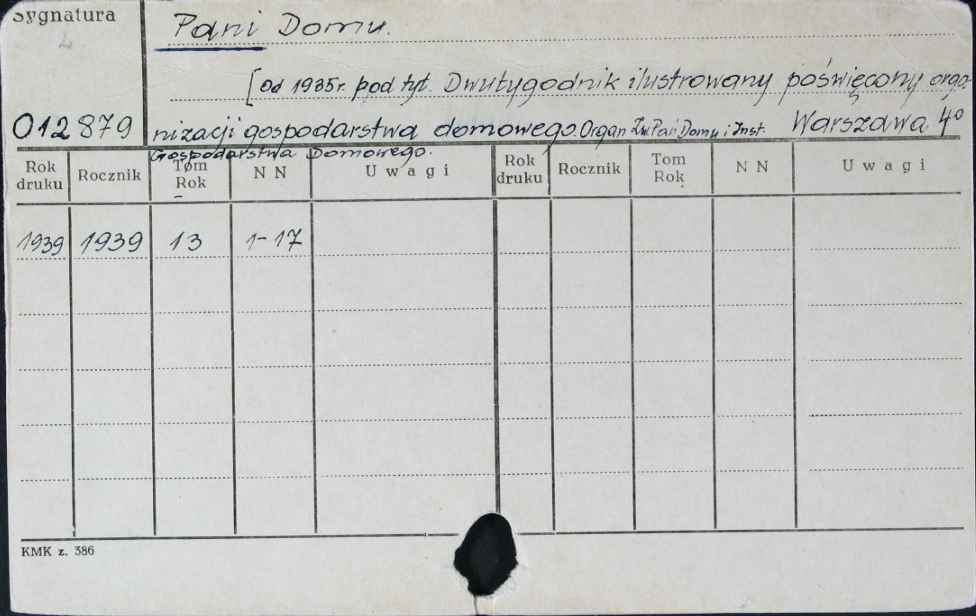 Sygnatura
Pani Domu.
[Od 1935r. pod tyt. Dwutygodnik ilustrowany poświęcony orga-
012879 nizacji gospodarstwa domowego. Organ Zw. Pań Domu i Inst. Warszawa 4°
Gospodarstwa Domowego.
Rok druku Rocznik Tom Rok N N Uwagi Rok druku Rocznik Tom Rok N N Uwagi
1939 1939 13 1-17
KMK z. 386